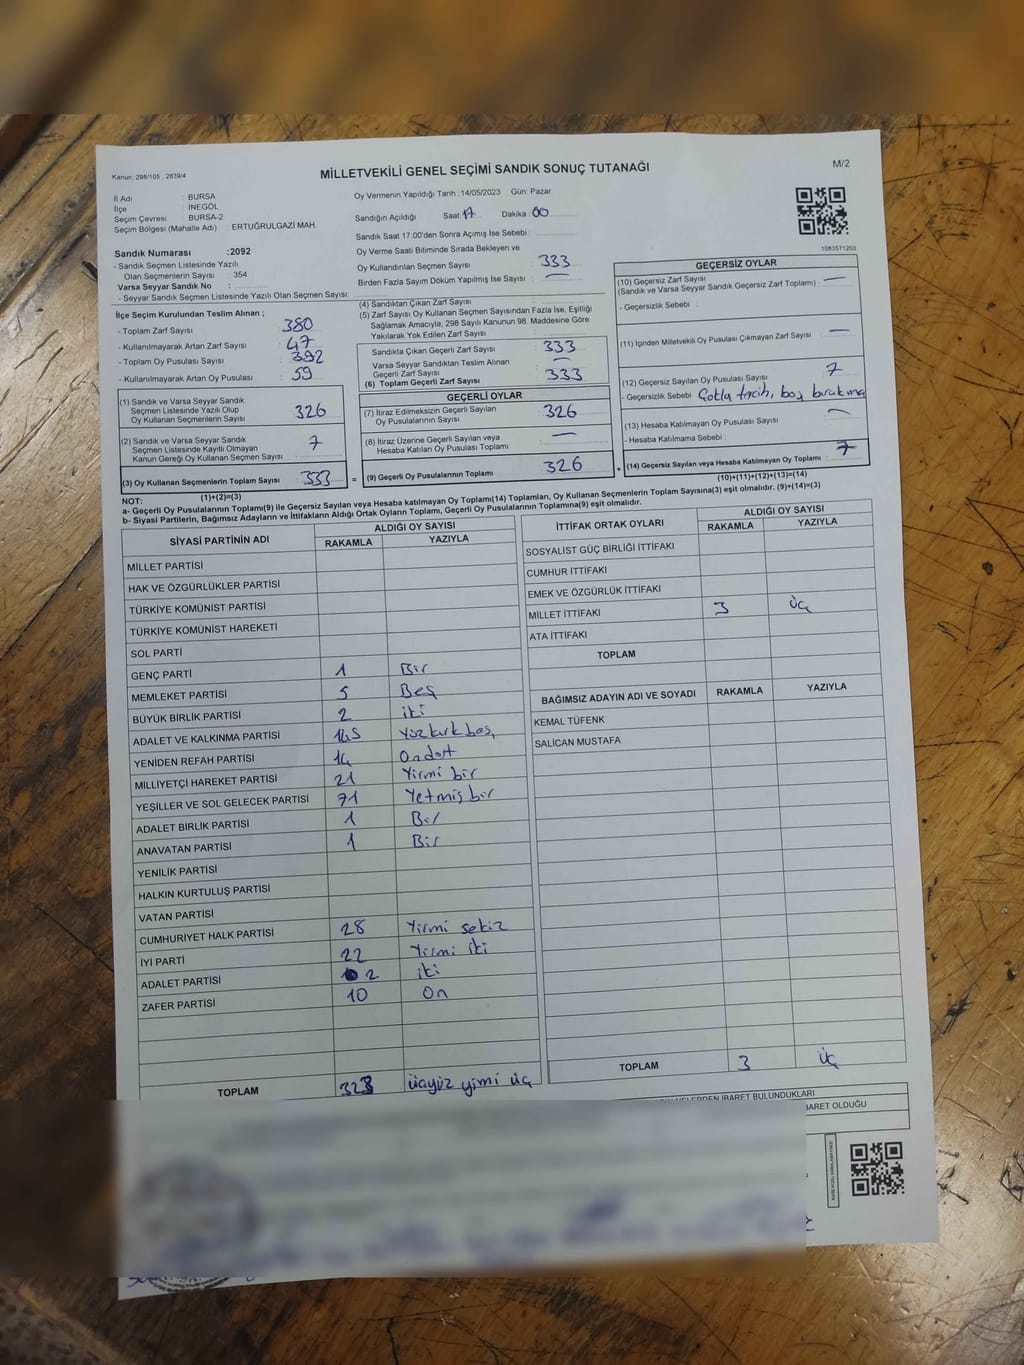 Kanun: 298/105 , 2839/4
MİLLETVEKİLİ GENEL SEÇİMİ SANDIK SONUÇ TUTANAĞI
M/2
İl Adı : BURSA
İlçe : İNEGÖL
Seçim Çevresi : BURSA-2
Seçim Bölgesi (Mahalle Adı) : ERTUĞRULGAZİ MAH.
Oy Vermenin Yapıldığı Tarih :14/05/2023 Gün: Pazar
Sandığın Açıldığı Saat: 17 Dakika : 00
Sandık Saat 17.00'den Sonra Açımış İse Sebebi :
Oy Verme Saati Bitiminde Sırada Bekleyen ve
Oy Kullandırılan Seçmen Sayısı : 333
Birden Fazla Sayım Döküm Yapılmış İse Sayısı : —
1083571203
Sandık Numarası :2092
- Sandık Seçmen Listesinde Yazılı
Olan Seçmenlerin Sayısı : 354
Varsa Seyyar Sandık No :
- Seyyar Sandık Seçmen Listesinde Yazılı Olan Seçmen Sayısı:
İlçe Seçim Kurulundan Teslim Alınan ;
- Toplam Zarf Sayısı : 380
- Kullanılmayarak Artan Zarf Sayısı : 47
- Toplam Oy Pusulası Sayısı : 392
- Kullanılmayarak Artan Oy Pusulası : 59
(1) Sandık ve Varsa Seyyar Sandık
Seçmen Listesinde Yazılı Olup
Oy Kullanan Seçmenlerin Sayısı : 326
(2) Sandık ve Varsa Seyyar Sandık
Seçmen Listesinde Kayıtlı Olmayan
Kanun Gereği Oy Kullanan Seçmen Sayısı : 7
(3) Oy Kullanan Seçmenlerin Toplam Sayısı : 333
(1)+(2)=(3)
(4) Sandıktan Çıkan Zarf Sayısı :
(5) Zarf Sayısı Oy Kullanan Seçmen Sayısından Fazla İse, Eşitliği
Sağlamak Amacıyla; 298 Sayılı Kanunun 98. Maddesine Göre
Yakılarak Yok Edilen Zarf Sayısı :
Sandıkta Çıkan Geçerli Zarf Sayısı : 333
Varsa Seyyar Sandıktan Teslim Alınan
Geçerli Zarf Sayısı : —
(6) Toplam Geçerli Zarf Sayısı : 333
GEÇERLİ OYLAR
(7) İtiraz Edilmeksizin Geçerli Sayılan
Oy Pusulalarının Sayısı : 326
(8) İtiraz Üzerine Geçerli Sayılan veya
Hesaba Katılan Oy Pusulası Toplamı : —
= (9) Geçerli Oy Pusulalarının Toplamı : 326
GEÇERSİZ OYLAR
(10) Geçersiz Zarf Sayısı
(Sandık ve Varsa Seyyar Sandık Geçersiz Zarf Toplamı) : —
- Geçersizlik Sebebi :
(11) İçinden Milletvekili Oy Pusulası Çıkmayan Zarf Sayısı : —
(12) Geçersiz Sayılan Oy Pusulası Sayısı : 7
- Geçersizlik Sebebi : Çoklu tercih, boş bırakma
(13) Hesaba Katılmayan Oy Pusulası Sayısı : —
- Hesaba Katılmama Sebebi :
+ (14) Geçersiz Sayılan veya Hesaba Katılmayan Oy Toplamı : 7
(10)+(11)+(12)+(13)=(14)
NOT:
a- Geçerli Oy Pusulalarının Toplamı(9) ile Geçersiz Sayılan veya Hesaba katılmayan Oy Toplamı(14) Toplamları, Oy Kullanan Seçmenlerin Toplam Sayısına(3) eşit olmalıdır. (9)+(14)=(3)
b- Siyasi Partilerin, Bağımsız Adayların ve İttifakların Aldığı Ortak Oyların Toplamı, Geçerli Oy Pusulalarının Toplamına(9) eşit olmalıdır.
SİYASİ PARTİNİN ADI ALDIĞI OY SAYISI
RAKAMLA YAZIYLA
MİLLET PARTİSİ
HAK VE ÖZGÜRLÜKLER PARTİSİ
TÜRKİYE KOMÜNİST PARTİSİ
TÜRKİYE KOMÜNİST HAREKETİ
SOL PARTİ
GENÇ PARTİ 1 Bir
MEMLEKET PARTİSİ 5 Beş
BÜYÜK BİRLİK PARTİSİ 2 iki
ADALET VE KALKINMA PARTİSİ 145 Yüzkırkbeş
YENİDEN REFAH PARTİSİ 14 Ondört
MİLLİYETÇİ HAREKET PARTİSİ 21 Yirmi bir
YEŞİLLER VE SOL GELECEK PARTİSİ 71 Yetmiş bir
ADALET BİRLİK PARTİSİ 1 Bir
ANAVATAN PARTİSİ 1 Bir
YENİLİK PARTİSİ
HALKIN KURTULUŞ PARTİSİ
VATAN PARTİSİ
CUMHURİYET HALK PARTİSİ 28 Yirmi sekiz
İYİ PARTİ 22 Yirmi iki
ADALET PARTİSİ 2 iki
ZAFER PARTİSİ 10 On
TOPLAM 323 üçyüz yimi üç
İTTİFAK ORTAK OYLARI ALDIĞI OY SAYISI
RAKAMLA YAZIYLA
SOSYALİST GÜÇ BİRLİĞİ İTTİFAKI
CUMHUR İTTİFAKI
EMEK VE ÖZGÜRLÜK İTTİFAKI
MİLLET İTTİFAKI 3 üç
ATA İTTİFAKI
TOPLAM
BAĞIMSIZ ADAYIN ADI VE SOYADI RAKAMLA YAZIYLA
KEMAL TÜFENK
SALİCAN MUSTAFA
TOPLAM 3 üç
İBARET BULUNDUKLARI
BARET OLDUĞU